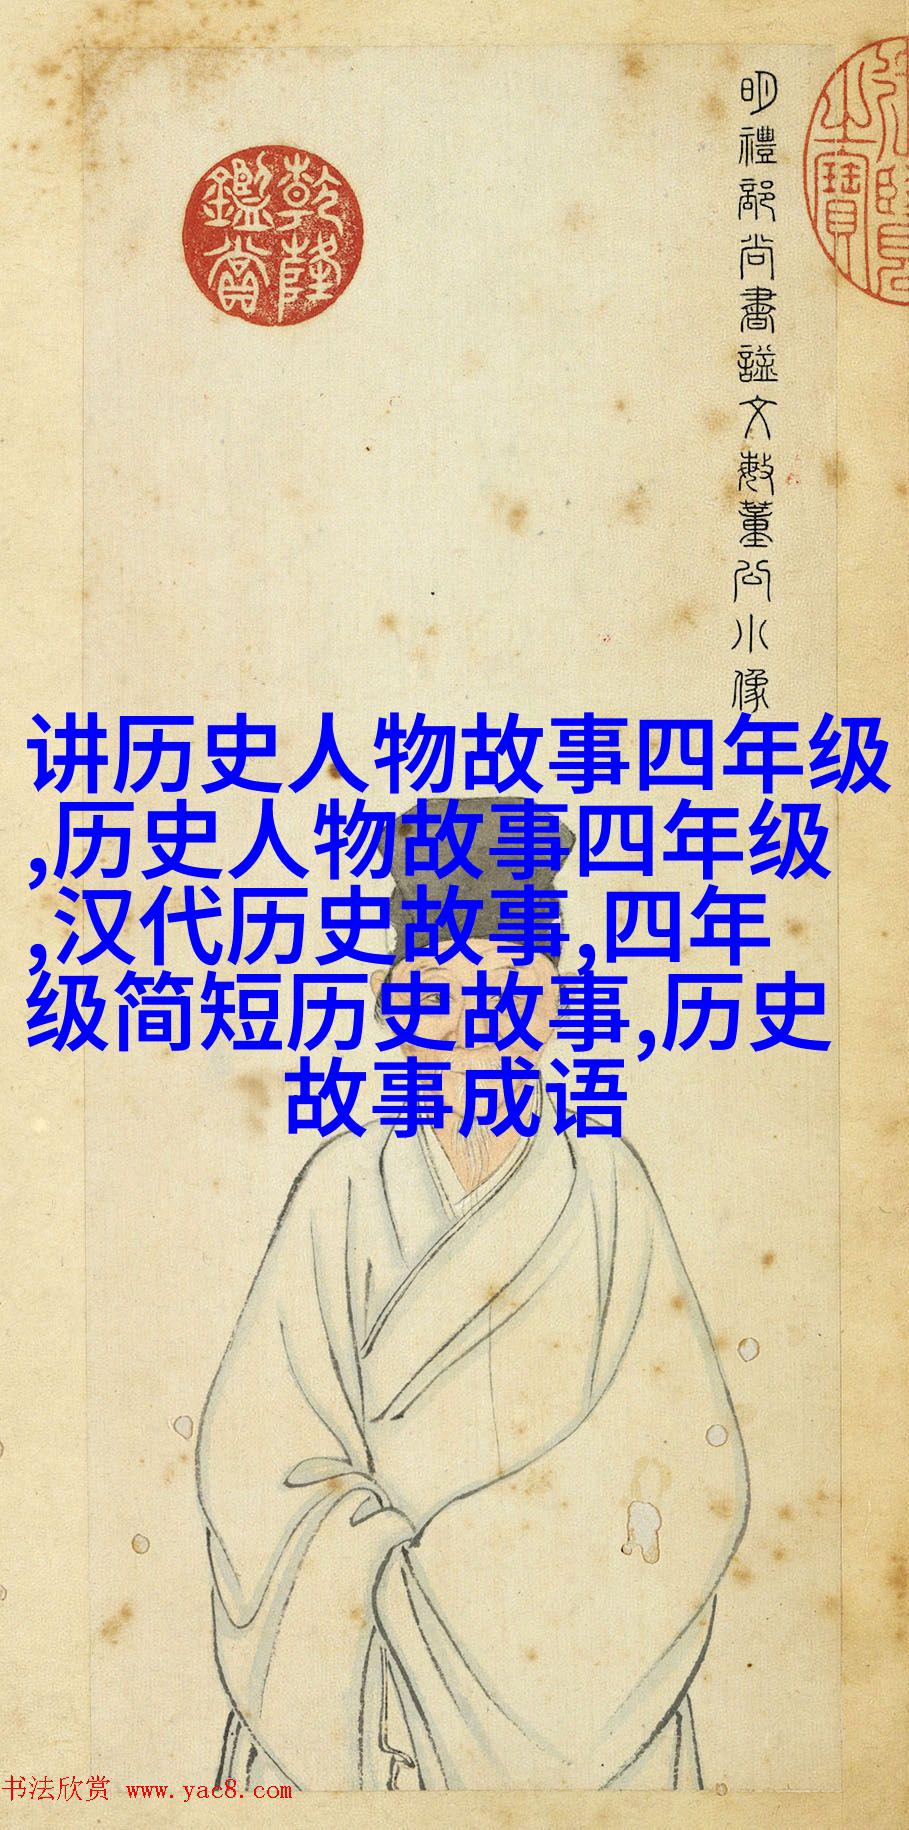 明禮部尚書諡文敏董公小像
乾隆
鑑賞
讲历史人物故事四年级
,历史人物故事四年级
,汉代历史故事,四年
级简短历史故事,历史
故事成语
书法欣赏 www.yac8.com